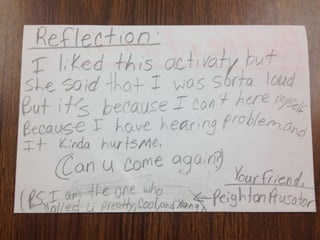 Reflection:
I liked this activaty but
she said that I was sorta loud
But it's because I can't here myself
Because I have hearing problem, and
It kinda hurts me.
(Can u come again)
Your friend,
(PS, I am the one who
called u preatty, cool, and young) ← Peighton Ausator